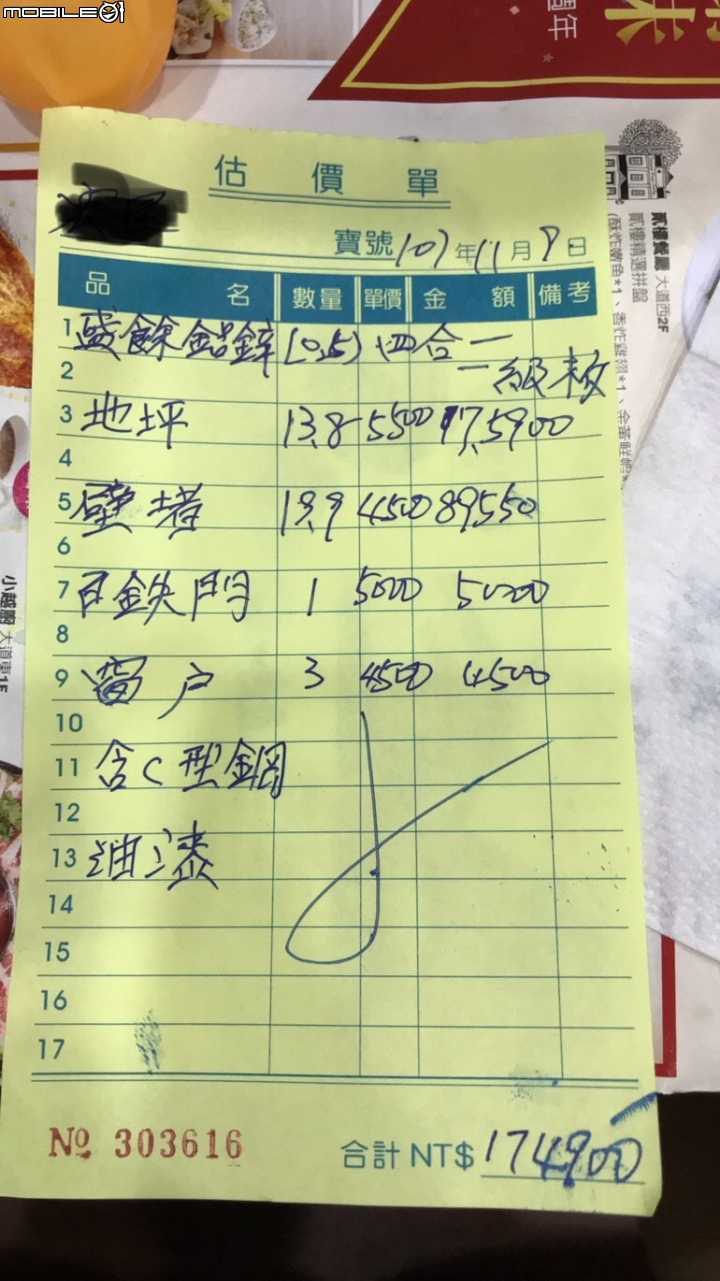 MOBILE01
味
週年
估價單
寶號 107年11月9日
品名 數量 單價 金額 備考
1 盛餘鋁鋅 (0.5) 四合一
2 一級板
3 地坪 13.8 5500 75900
4
5 壁堵 19.9 4500 89550
6
7 白鉄門 1 5000 5000
8
9 窗户 3 4500 4500
10
11 含C型鋼
12
13 油漆
14
15
16
17
No 303616
合計NT$ 174900
貳樓餐廳 大道西2F
貳樓精選拼盤
(酥炸嫩魚*1、香炸雞翅*1、
小越廚 大道東1F